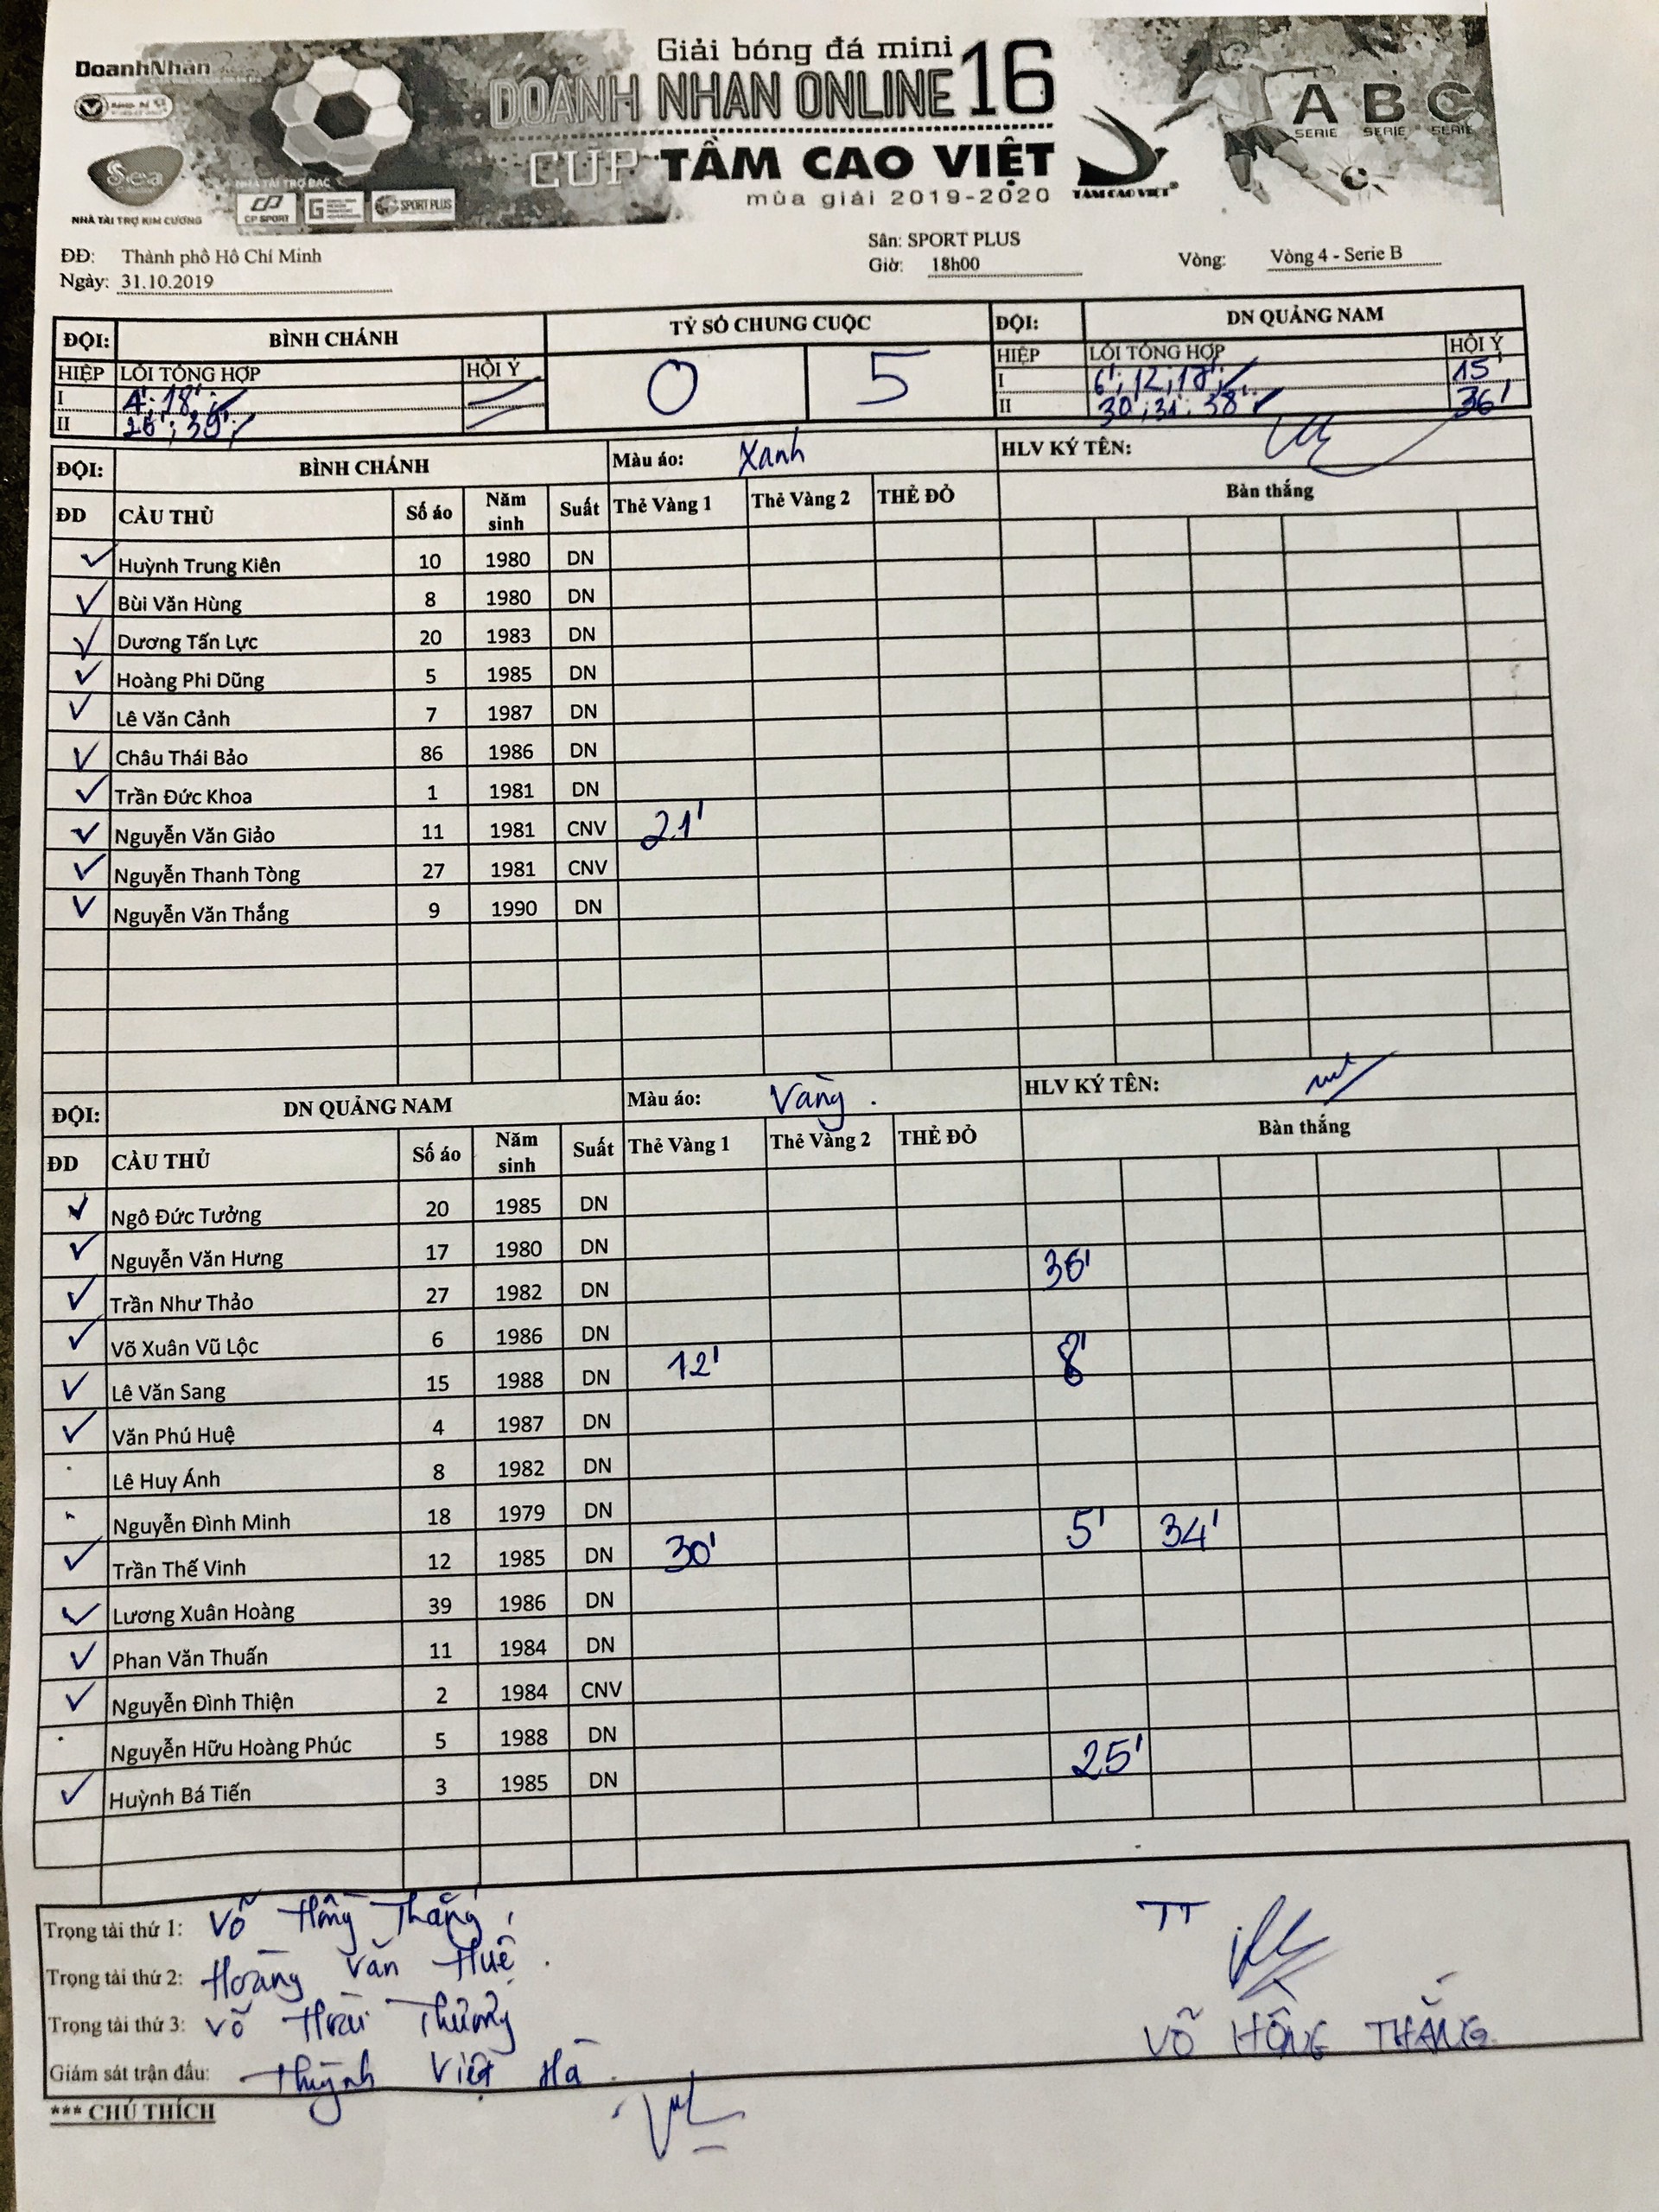 DoanhNhân
Giải bóng đá mini
DOANH NHAN ONLINE 16
CUP TẦM CAO VIỆT
mùa giải 2019-2020
TẦM CAO VIỆT
A B C
SERIE SERIE SERIE
Sea
NHÀ TÀI TRỢ KIM CƯƠNG
NHÀ TÀI TRỢ BẠC
CP SPORT
SPORT PLUS
ĐĐ: Thành phố Hồ Chí Minh
Sân: SPORT PLUS
Ngày: 31.10.2019
Giờ: 18h00
Vòng: Vòng 4 - Serie B
ĐỘI: BÌNH CHÁNH TỶ SỐ CHUNG CUỘC ĐỘI: DN QUẢNG NAM
HIỆP LỖI TỔNG HỢP HỘI Ý 0 5 HIỆP LỖI TỔNG HỢP HỘI Ý
I 4'; 18'; I 6'; 12'; 17'; 15'
II 26'; 39'; II 30'; 31'; 38' 36'
ĐỘI: BÌNH CHÁNH Màu áo: Xanh HLV KÝ TÊN:
ĐD CẦU THỦ Số áo Năm sinh Suất Thẻ Vàng 1 Thẻ Vàng 2 THẺ ĐỎ Bàn thắng
Huỳnh Trung Kiên 10 1980 DN
Bùi Văn Hùng 8 1980 DN
Dương Tấn Lực 20 1983 DN
Hoàng Phi Dũng 5 1985 DN
Lê Văn Cảnh 7 1987 DN
Châu Thái Bảo 86 1986 DN
Trần Đức Khoa 1 1981 DN
Nguyễn Văn Giảo 11 1981 CNV 21'
Nguyễn Thanh Tòng 27 1981 CNV
Nguyễn Văn Thắng 9 1990 DN
ĐỘI: DN QUẢNG NAM Màu áo: Vàng. HLV KÝ TÊN:
ĐD CẦU THỦ Số áo Năm sinh Suất Thẻ Vàng 1 Thẻ Vàng 2 THẺ ĐỎ Bàn thắng
Ngô Đức Tưởng 20 1985 DN
Nguyễn Văn Hưng 17 1980 DN 36'
Trần Như Thảo 27 1982 DN
Võ Xuân Vũ Lộc 6 1986 DN
Lê Văn Sang 15 1988 DN 12' 8'
Văn Phú Huệ 4 1987 DN
Lê Huy Ánh 8 1982 DN
Nguyễn Đình Minh 18 1979 DN
Trần Thế Vinh 12 1985 DN 30' 5' 34'
Lương Xuân Hoàng 39 1986 DN
Phan Văn Thuấn 11 1984 DN
Nguyễn Đình Thiện 2 1984 CNV
Nguyễn Hữu Hoàng Phúc 5 1988 DN
Huỳnh Bá Tiến 3 1985 DN 25'
Trọng tài thứ 1: Võ Hồng Thắng
TT
Trọng tài thứ 2: Hoàng Văn Huệ.
Trọng tài thứ 3: Võ Hoài Thương
VÕ HỒNG THẮNG
Giám sát trận đấu: Huỳnh Việt Hà.
*** CHÚ THÍCH